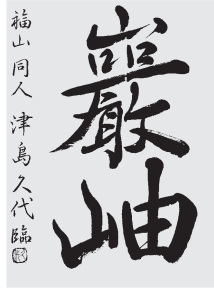 巖岫
福山同人 津島久代臨